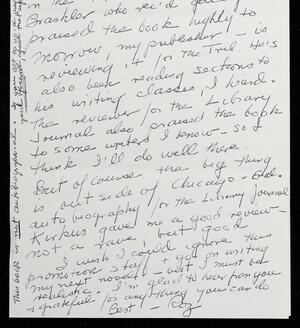 in the
Brashler who rec'd
praised the book highly to
Morrow, my publisher – is
reviewing it for the Trib. He's
also been reading sections to
his writing classes, I heard.
The reviewer for the Library
Journal also praised the book
to some writers I know – so I
think I'll do well there.
But of course the big thing
is outside of Chicago –
autobiography for the Library Journal
Kirkus gave me a good review –
not a rave, but good
I wish I could ignore this
promotion stuff & go on writing
my next novel – but I must be
realistic. I'm glad to hear from you
& grateful for anything you can do
Best –
This book is not autobiographical –